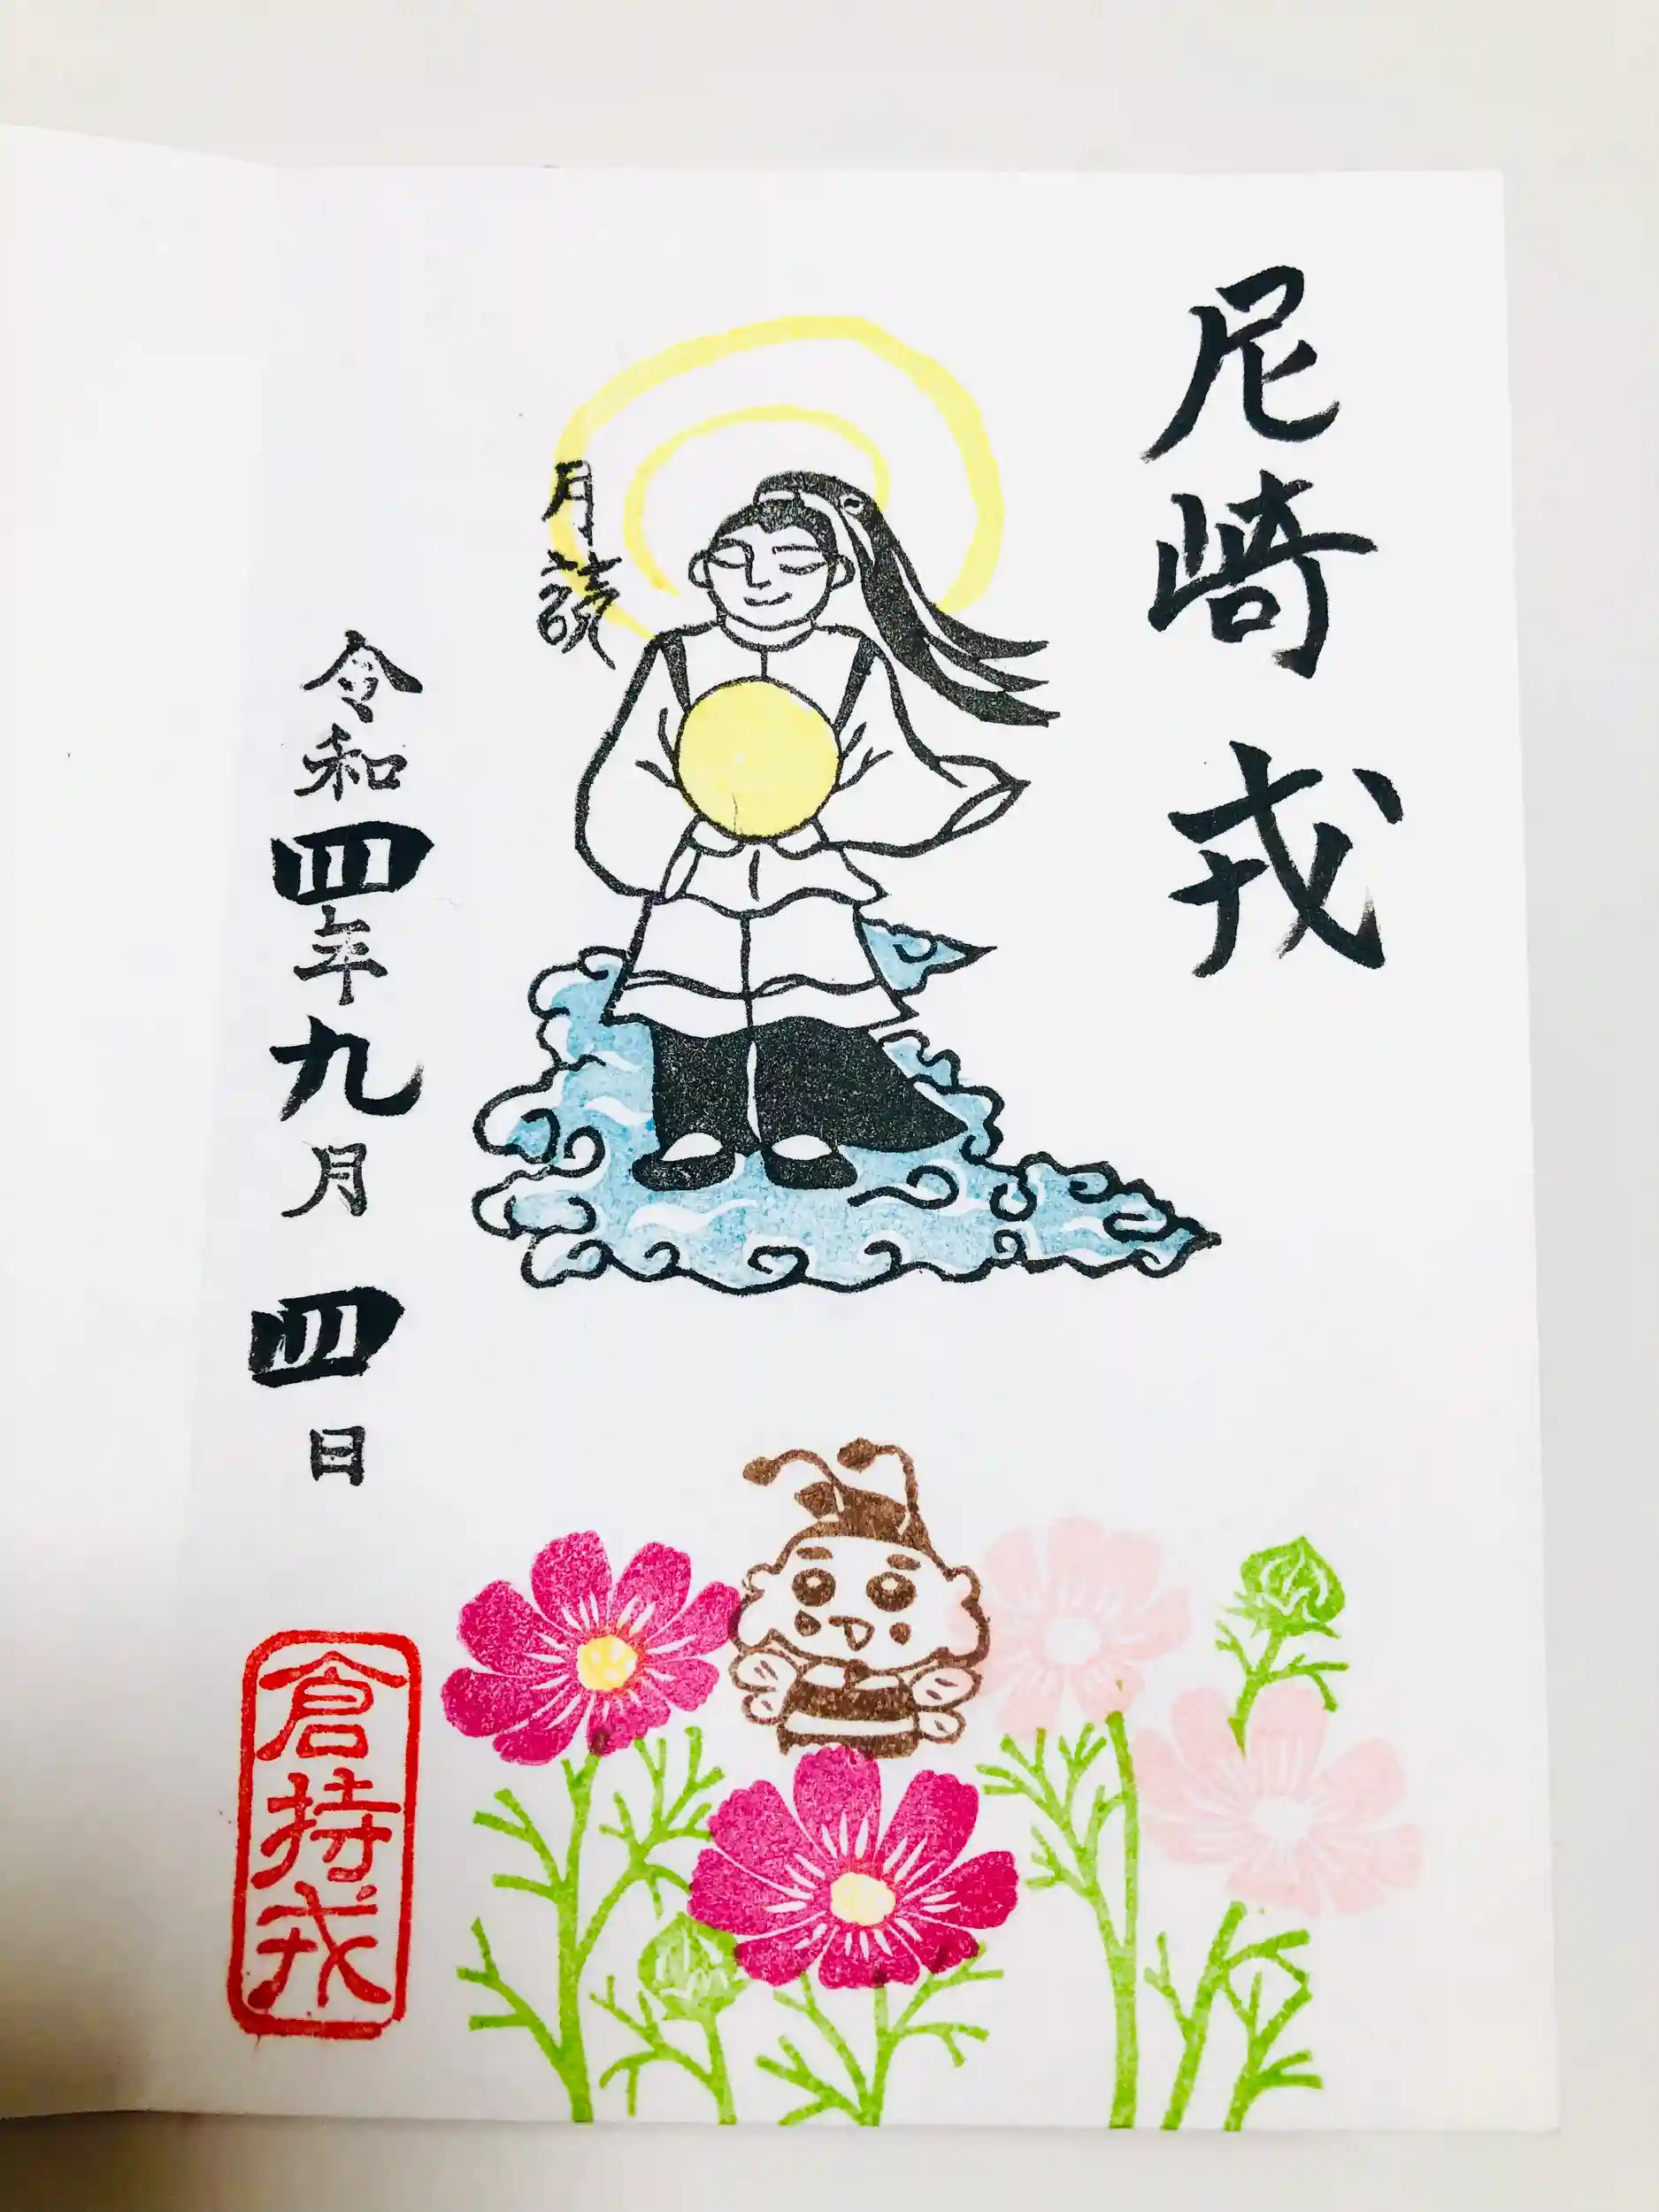 尼崎戎
月読
令和四年九月四日
倉持戎